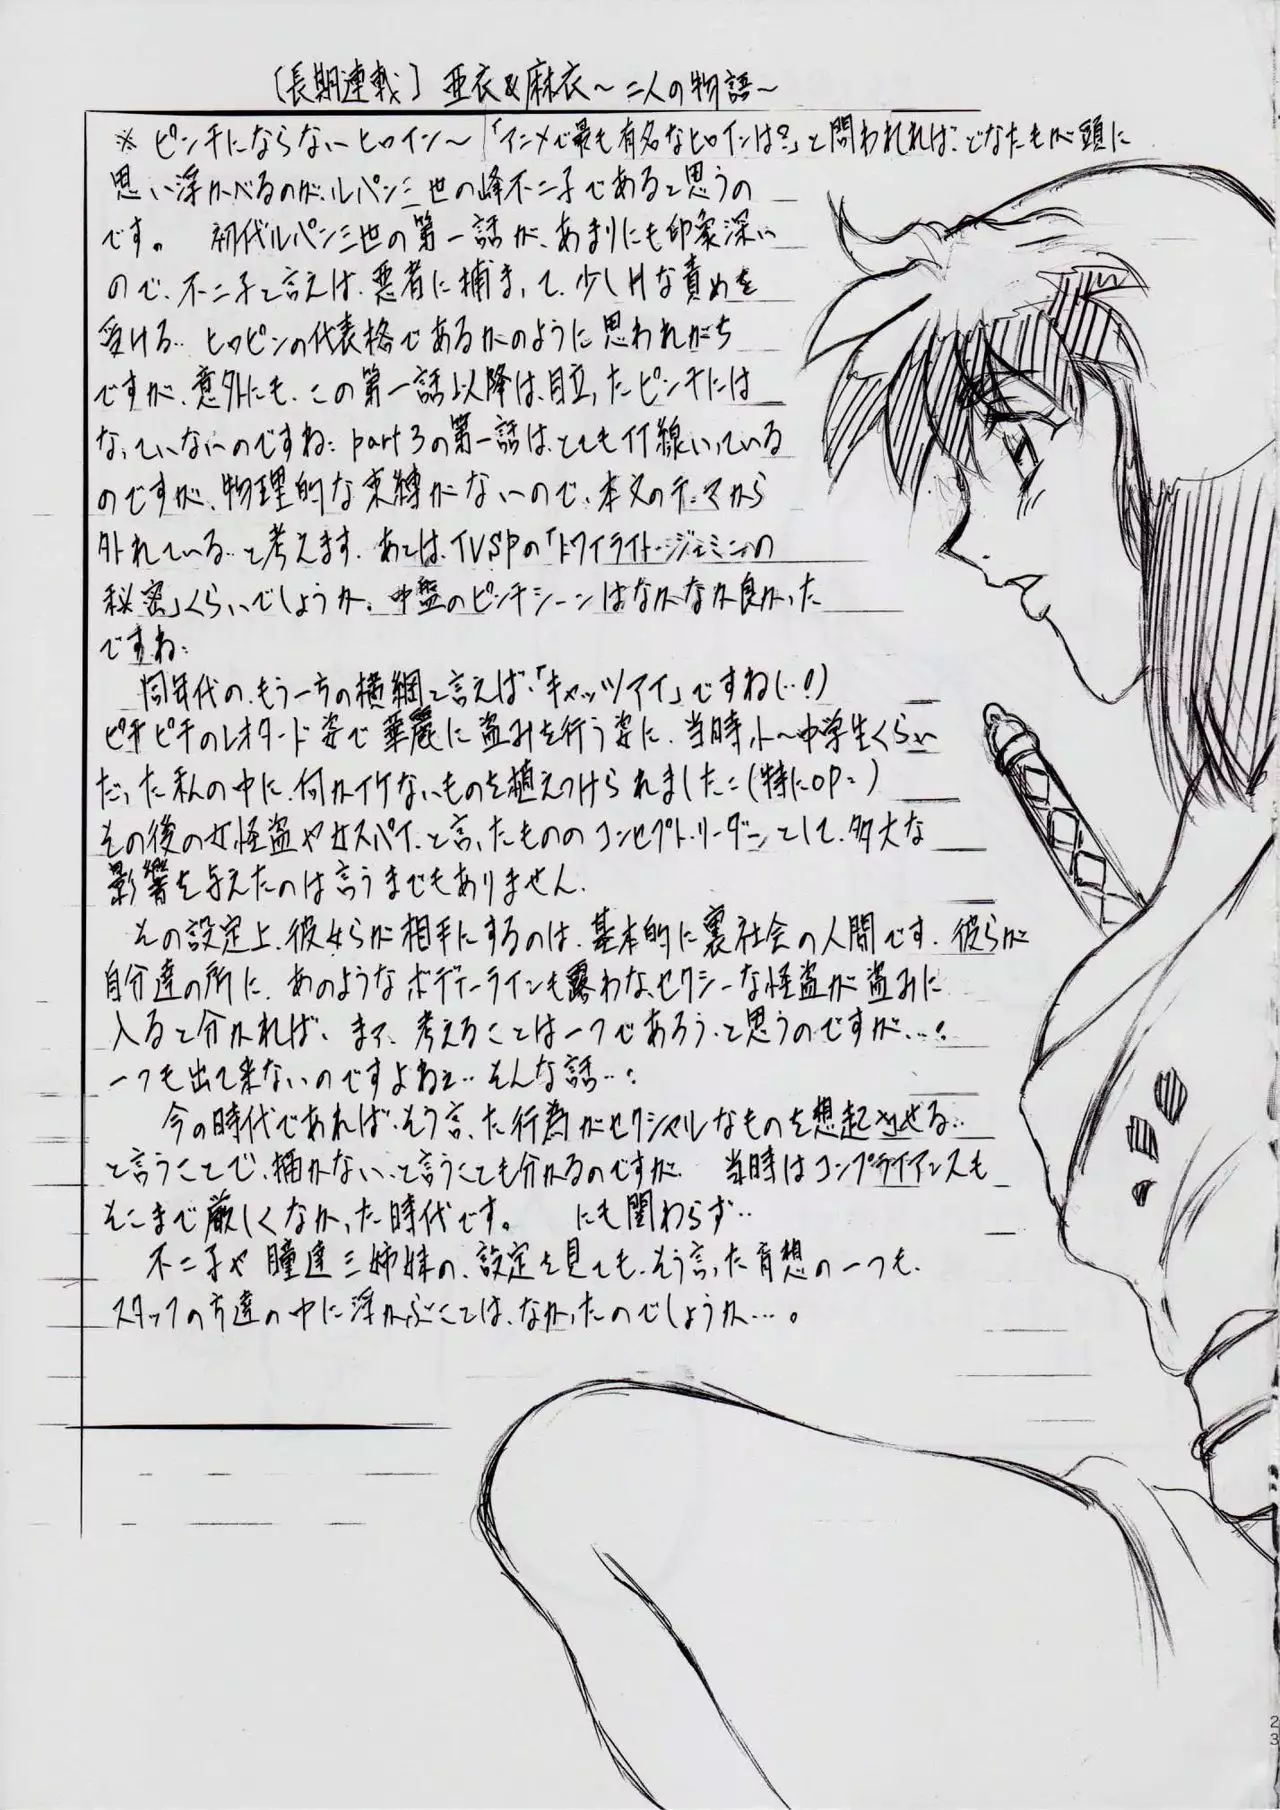 ［長期連載］ 亜衣&麻衣～二人の物語～
※ ピンチにならないヒロイン～「アニメで最も有名なヒロインは?」と問われれば、どなたもが頭に
思い浮かべるのが、ルパン三世の峰不二子であると思うの
です。 初代ルパン三世の第一話が、あまりにも印象深い
ので、不二子と言えば、悪者に捕まって、少しHな責めを
受ける… ヒロピンの代表格であるかのように思われがち
ですが、意外にも、この第一話以降は、目立ったピンチには
なっていないのですね… part3の第一話は、とてもイイ線いっている
のですが、物理的な束縛がないので、本文のテーマから
外れている…と考えます。あとは、TVSPの「トワイライト・ジェミニの
秘密」くらいでしょうか。中盤のピンチシーンはなかなか良かった
ですね…
同年代の、もう一ちの横綱と言えば、「キャッツアイ」ですね(…!)
ピチピチのレオタード姿で華麗に盗みを行う姿に、当時小～中学生くらい
だった私の中に、何かイケないものを植えつけられました…(特にOP…)
その後の女怪盗や女スパイ、と言ったもののコンセプト・リーダーとして、多大な
影響を与えたのは言うまでもありません。
その設定上、彼女らが相手にするのは、基本的に裏社会の人間です。彼らが
自分達の所に、あのようなボディーラインも露わな、セクシーな怪盗が盗みに
入ると分かれば、まず、考えることは一つであろう、と思うのですが…!
一つも出て来ないのですよねェ… そんな話…!
今の時代であれば、そう言った行為がセクシャルなものを想起させる…
と言うことで、描かない、と言うことも分かるのですが、当時はコンプライアンスも
そこまで厳しくなかった時代です。 にも関わらず…
不二子や瞳達三姉妹の、設定を見ても、そう言った妄想の一つも、
スタッフの方達の中に浮かぶことは、なかったのでしょうか…。
23